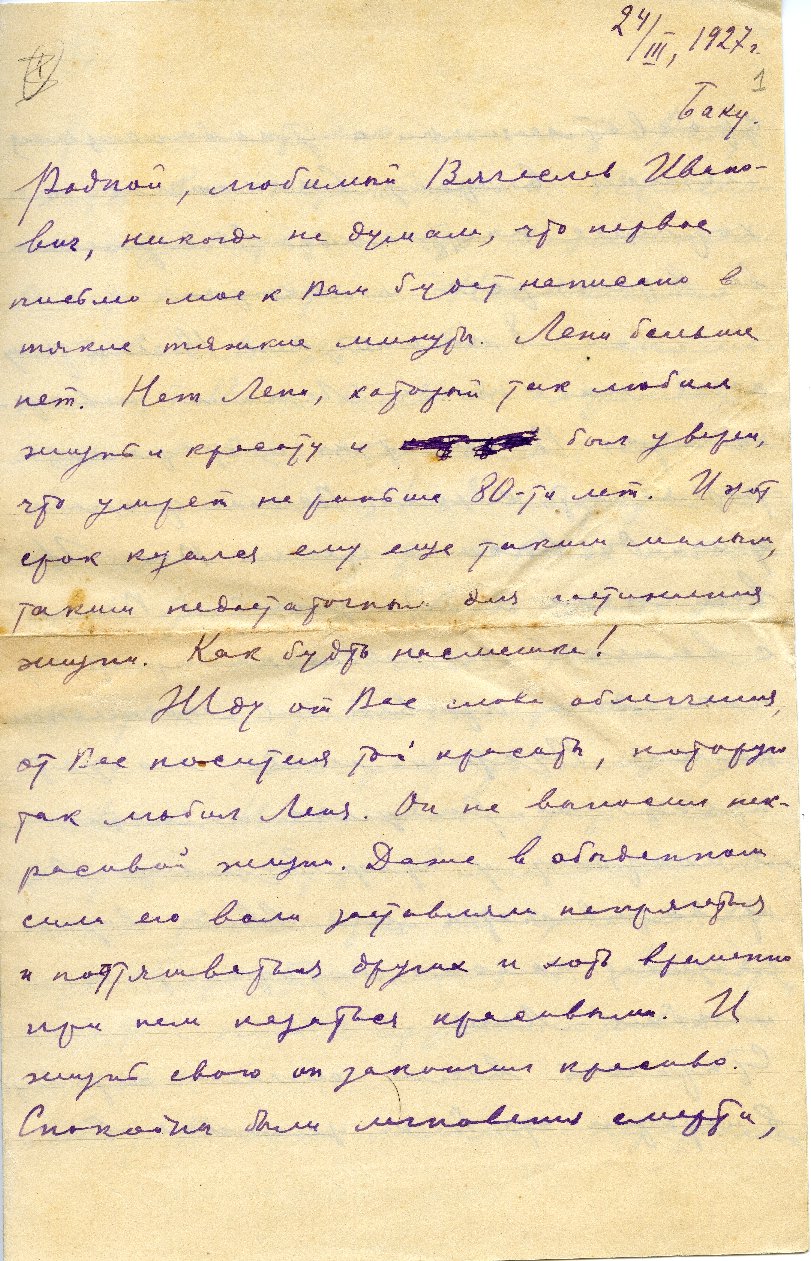 24/III, 1927 г.
1
Баку.
Родной, любимый Вячеслав Ивано-
вич, никогда не думали, что первое
письмо мое к Вам будет написано в
такие тяжкие минуты. Лени больше
нет. Нет Лени, который так любил
жизнь и красоту и был уверен,
что умрет не раньше 80-ти лет. И этот
срок казался ему еще таким малым,
таким недостаточным для постижения
жизни. Как будто насмешка!
Жду от Вас слова облегчения,
от Вас носителя той красоты, которую
так любил Леня. Он не выносил нек-
расивой жизни. Даже в обыденном
сила его воли заставляла напрягаться
и подтягиваться других и хоть временно
при нем казаться красивыми. И
жизнь свою он закончил красиво.
Спокойны были мгновения смерти,